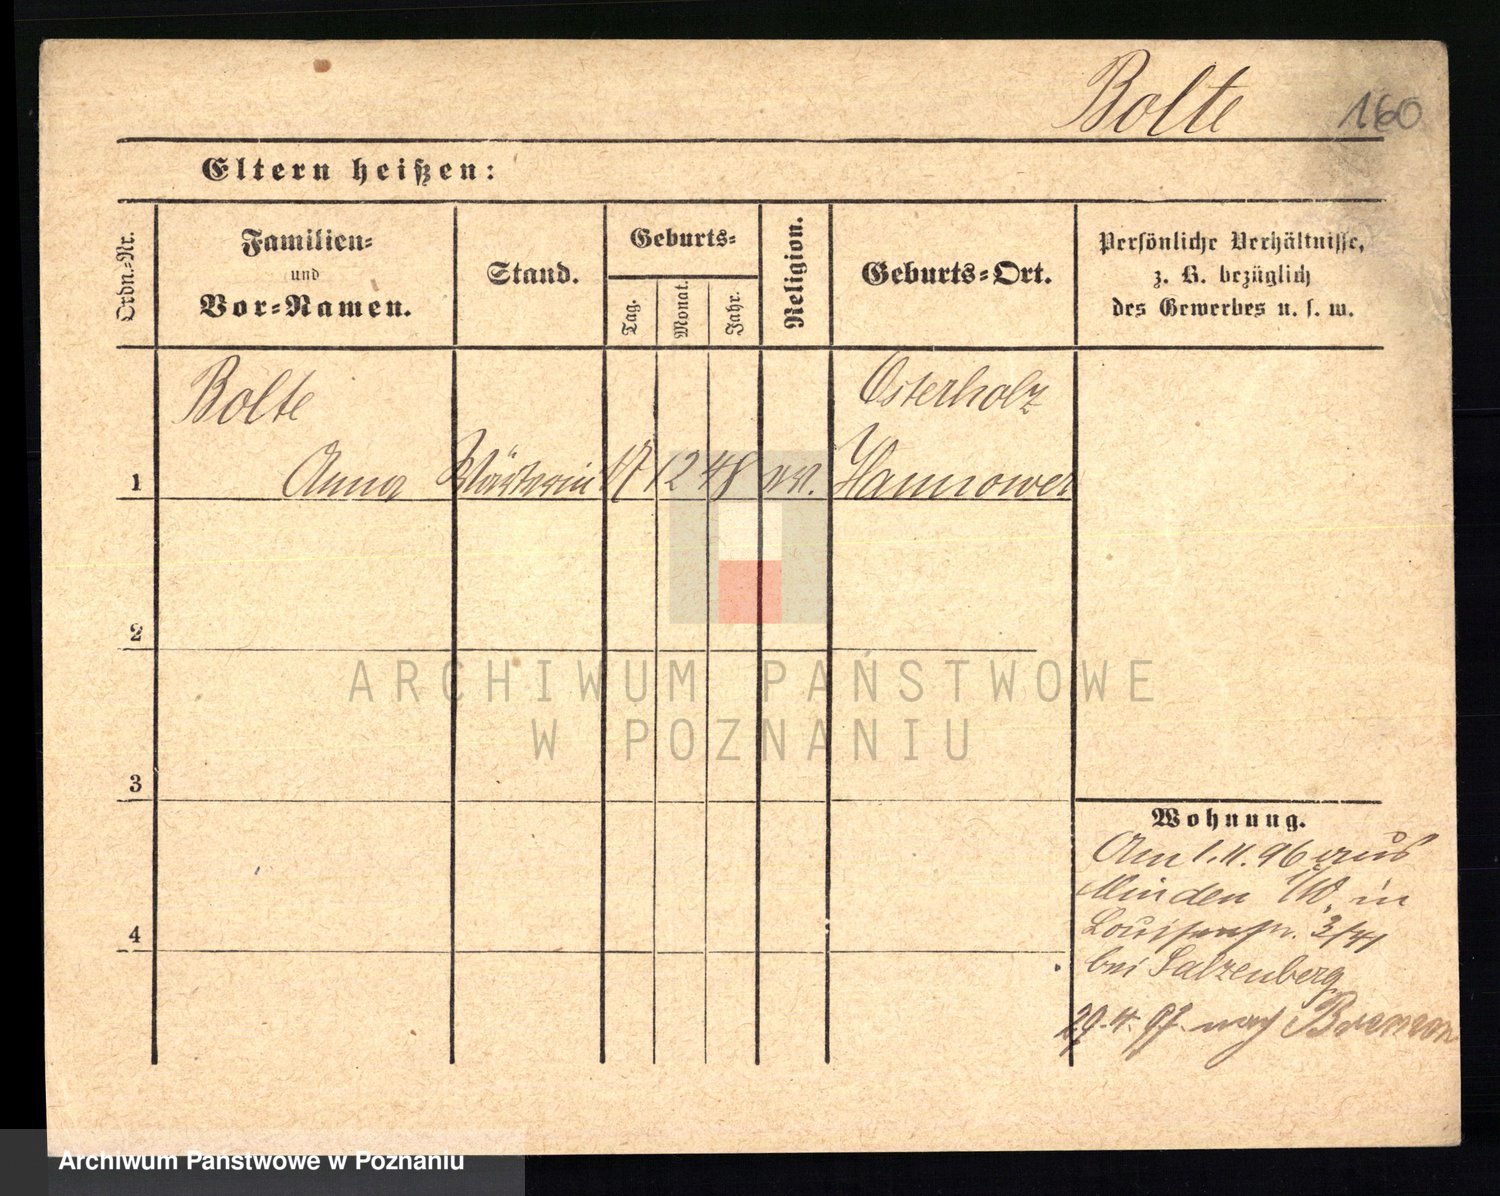 Bolte 160
Eltern heißen:
Ordn.-Nr.
Familien-
und
Vor-Namen.
Stand.
Geburts-
Tag.
Monat.
Jahr.
Religion.
Geburts-Ort.
Persönliche Verhältnisse,
z. B. bezüglich
des Gewerbes u. s. w.
Bolte Osterholz
1 Anna Wärterin 17 12 48 ev. Hannover
2
3
4
Wohnung.
Am 1. 11. 96 aus
Minden i/W. in
Louisenstr.
bei Salzenberg
29. 4. 97. nach Bremen
ARCHIWUM PAŃSTWOWE
W POZNANIU
Archiwum Państwowe w Poznaniu